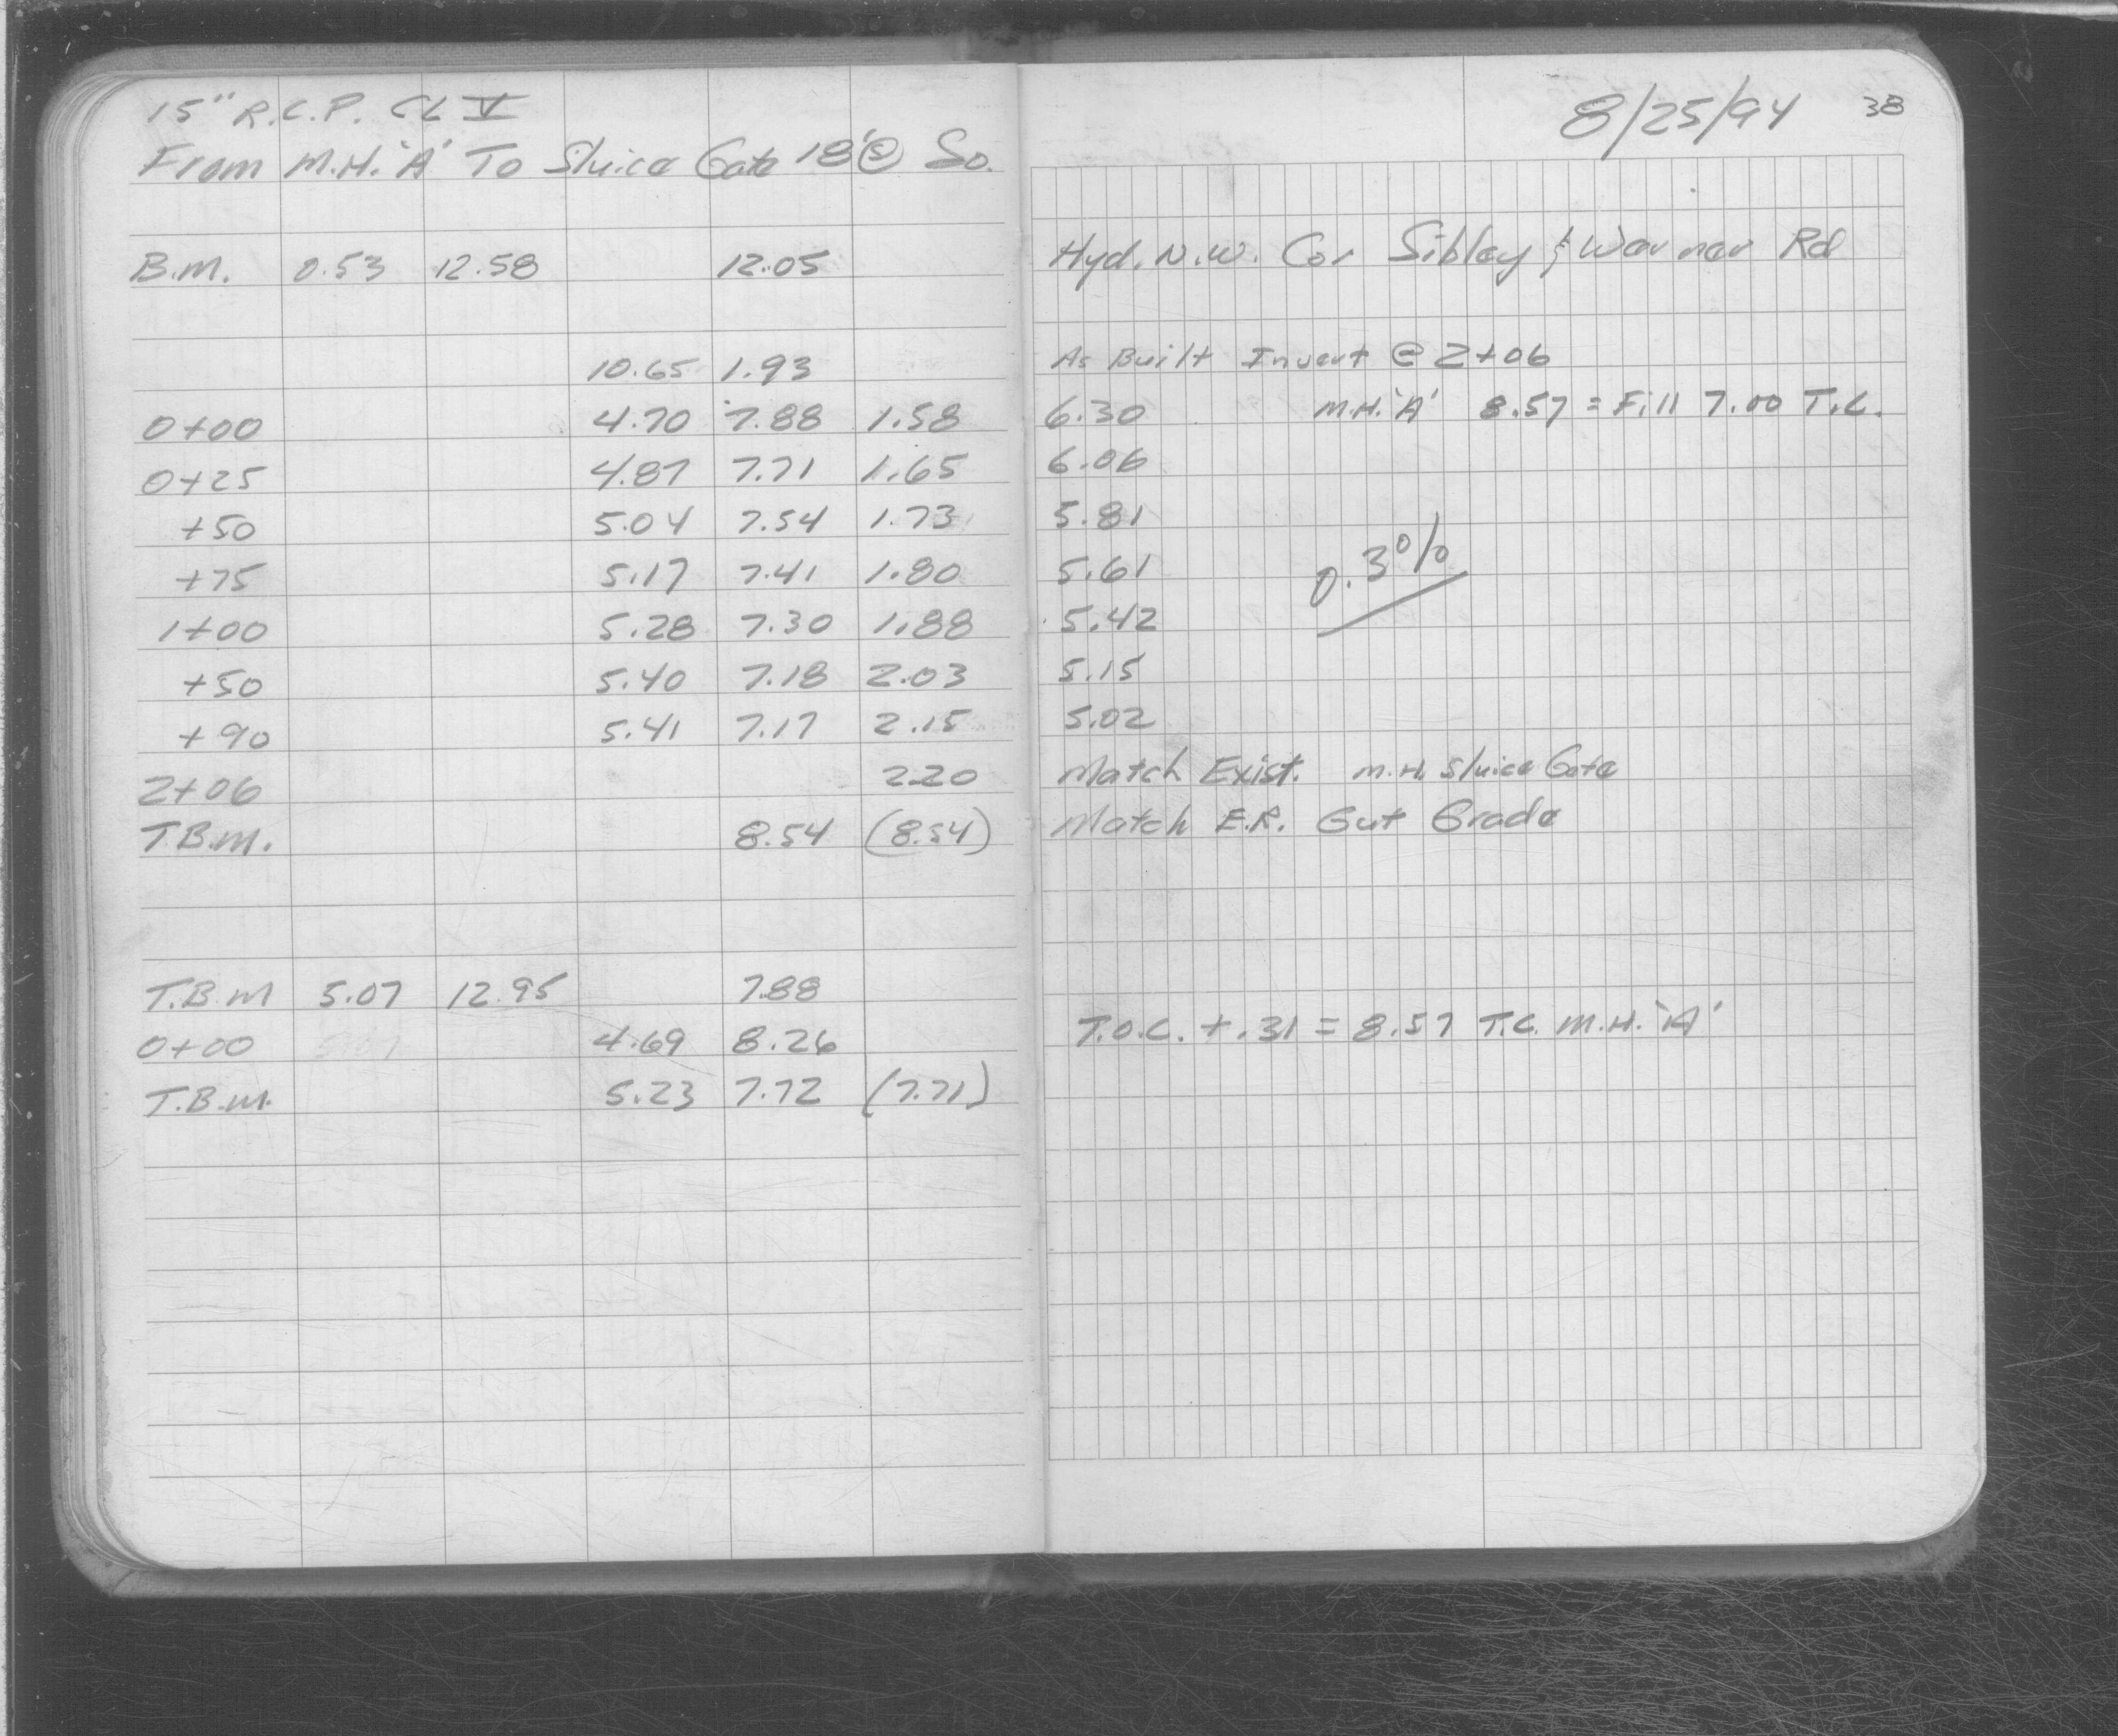 15" R.C.P. CL V
From M.H. 'A' To Sluice Gate 18' @ So.
B.M. 0.53 12.58 12.05
10.65 1.93
0+00 4.70 7.88 1.58
0+25 4.87 7.71 1.65
+50 5.04 7.54 1.73
+75 5.17 7.41 1.80
1+00 5.28 7.30 1.88
+50 5.40 7.18 2.03
+90 5.41 7.17 2.15
2+06 2.20
T.B.M. 8.54 (8.54)
T.B.M 5.07 12.95 7.88
0+00 4.69 8.26
T.B.M. 5.23 7.72 (7.71)
8/25/94 38
Hyd. N.W. Cor Sibley & Warner Rd
As Built Invert @ 2+06
6.30 M.H. 'A' 8.57 = Fill 7.00 T.C.
6.06
5.81
5.61 0.3%
5.42
5.15
5.02
Match Exist. M.H. Sluice Gate
Match E.R. Gut Grade
T.O.C. +.31 = 8.57 T.C. M.H. 'A'